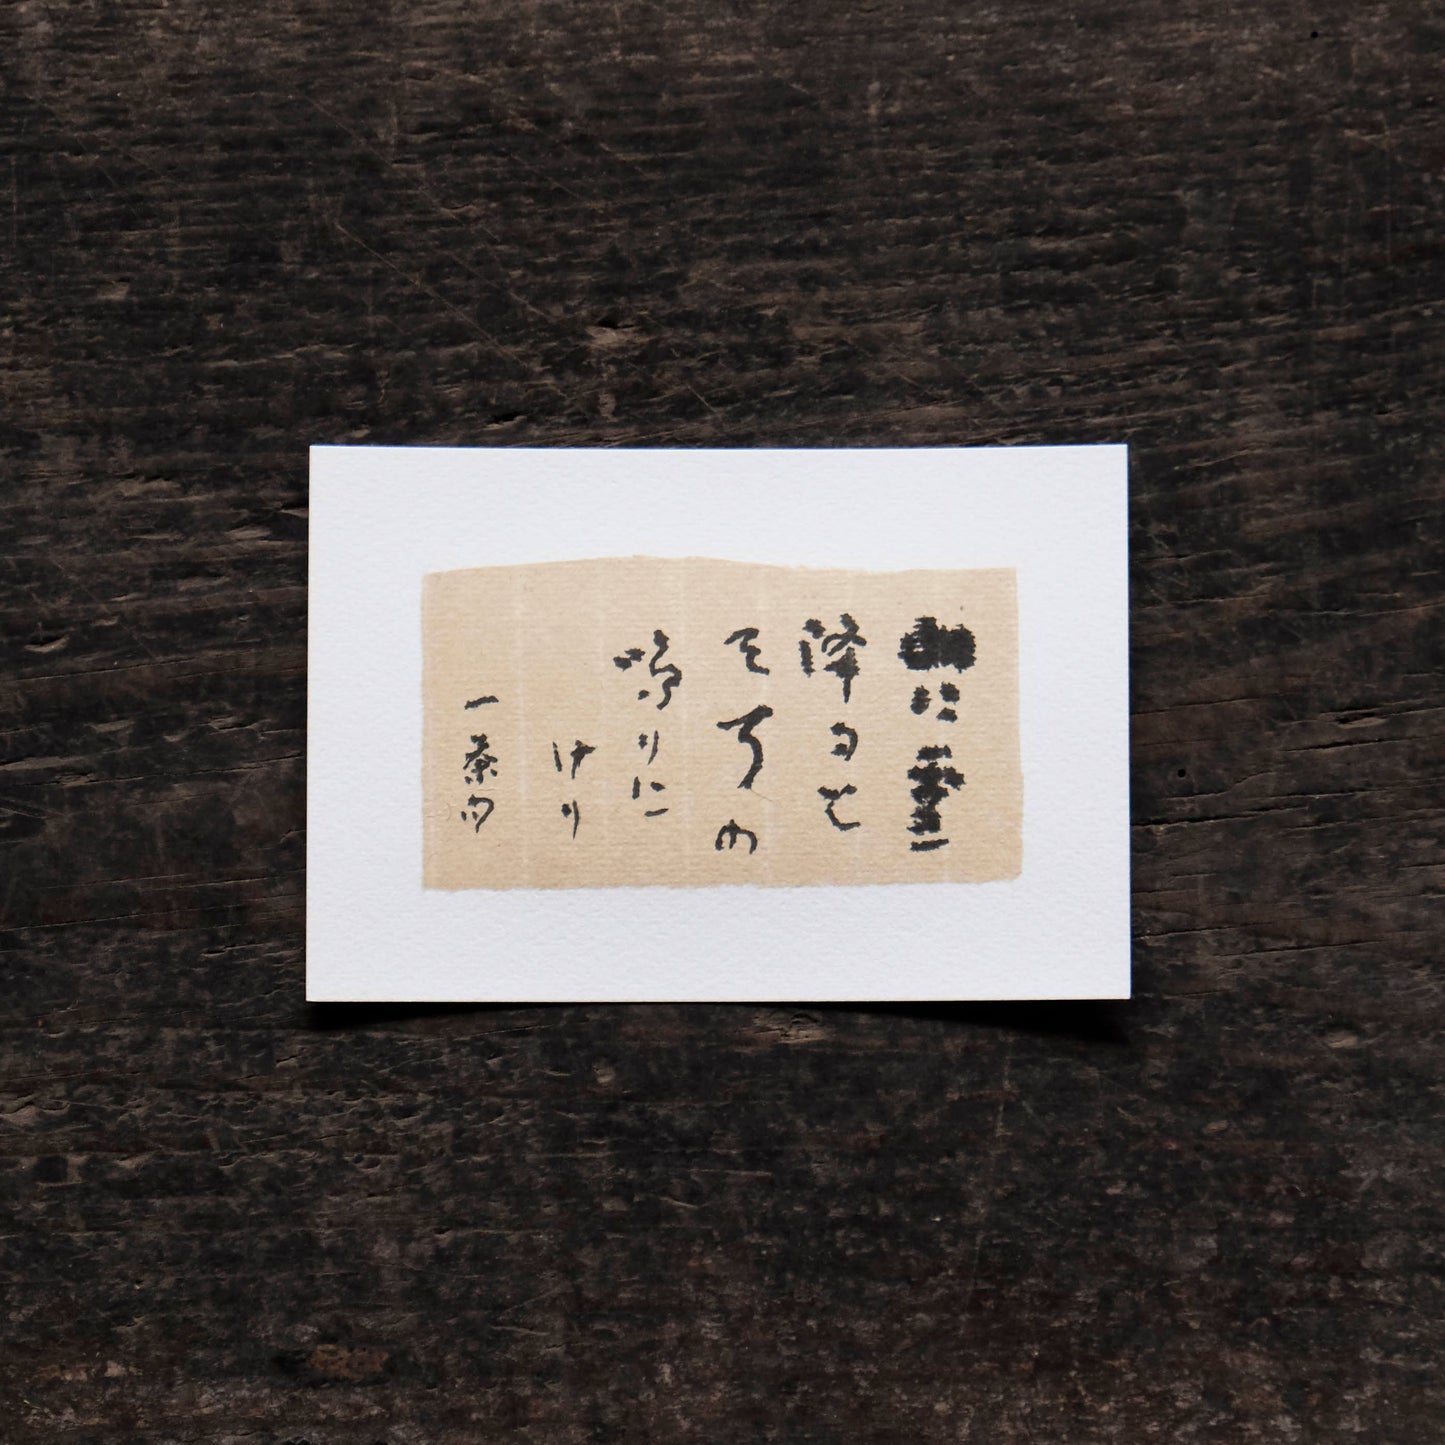 に雪
降ると
て耳の
鳴りに
けり
一茶句